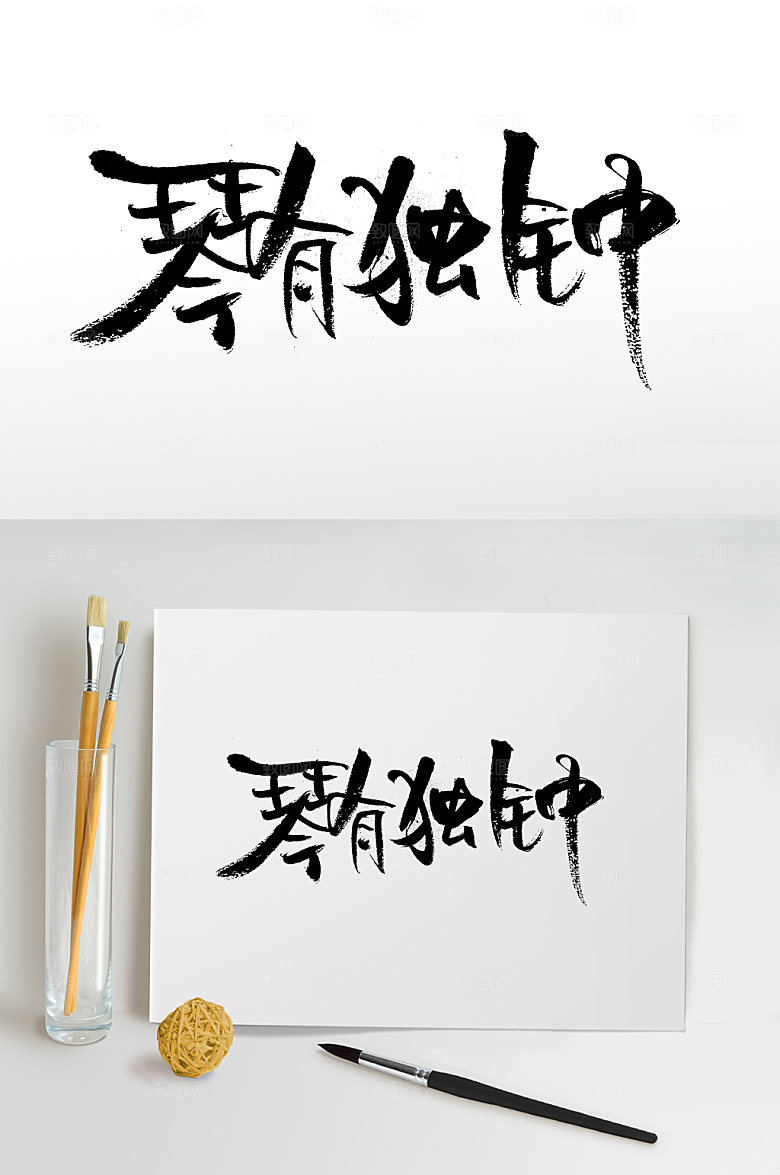 琴有独钟
琴有独钟